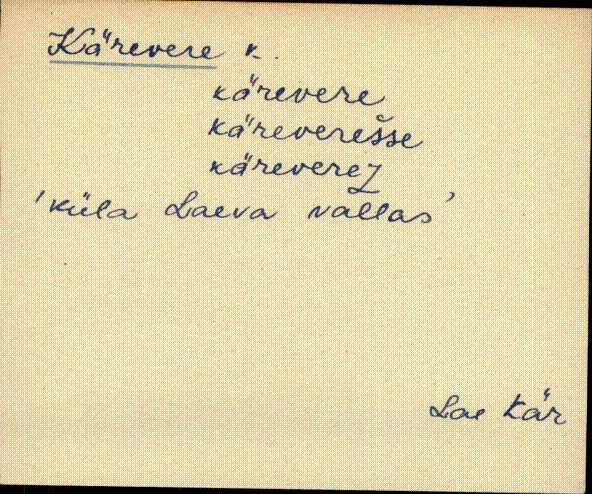 Kärevere k.
kärevere
käreverešse
käreverez
'küla Laeva vallas'
Lae Kär